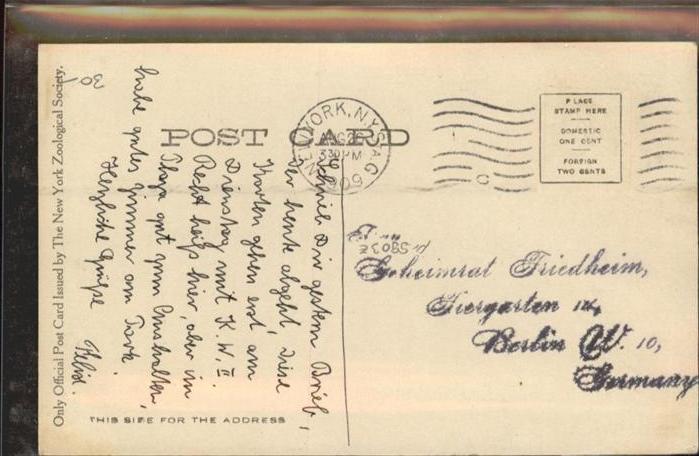 Only Official Post Card Issued by The New York Zoological Society.
POST CARD
NEW YORK, N.Y.
AUG 2
330PM
PLACE
STAMP HERE
DOMESTIC
ONE CENT
FOREIGN
TWO CENTS
30
Schrieb Dir gestern Brief,
der heute abgeht, diese
Karten gehen erst am
Dienstag mit K. W. II.
Recht heiß hier, aber im
gut zum Aushalten,
habe gutes Zimmer am Park.
Herzliche Grüße
Felix.
Geheimrat Friedheim,
Tiergarten
Berlin W. 10,
Germany
THIS SIDE FOR THE ADDRESS